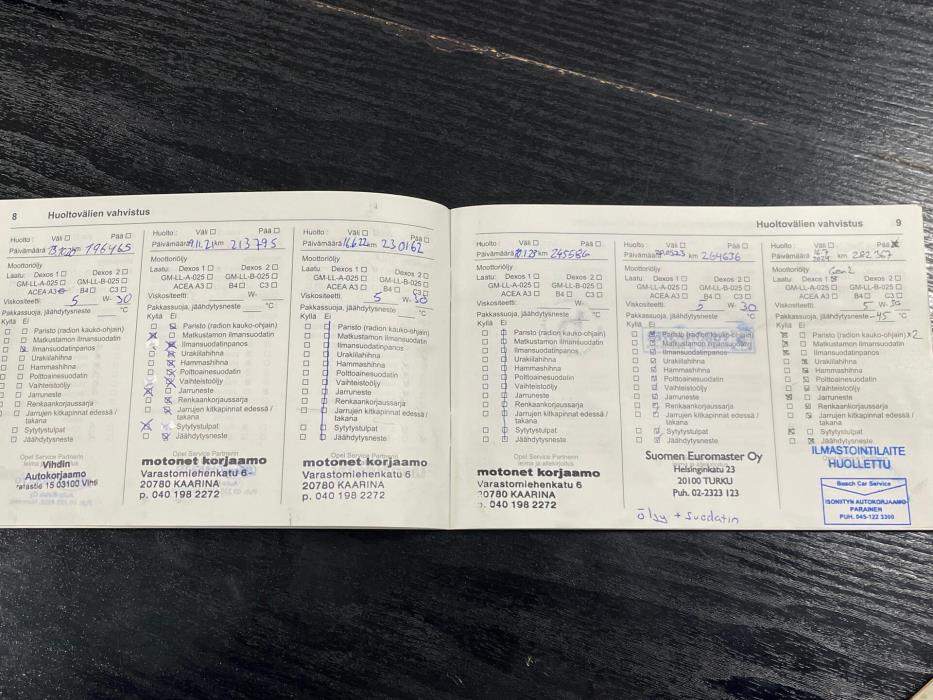 8 Huoltovälien vahvistus
Huolto : Väli Pää
Päivämäärä km 196465
Moottoriöljy
Laatu: Dexos 1 Dexos 2
GM-LL-A-025 GM-LL-B-025
ACEA A3 B4 C3
Viskositeetti: 5 W- 30
Pakkassuoja, jäähdytysneste °C
Kyllä Ei
Paristo (radion kauko-ohjain)
Matkustamon ilmansuodatin
Ilmansuodatinpanos
Urakiilahihna
Hammashihna
Polttoainesuodatin
Vaihteistoöljy
Jarruneste
Renkaankorjaussarja
Jarrujen kitkapinnat edessä /
takana
Sytytystulpat
Jäähdytysneste
Opel Service Partnerin
Vihdin
Autokorjaamo
15 03100 Vihti
Huolto : Väli Pää
Päivämäärä 9.11.21 km 213795
Moottoriöljy
Laatu: Dexos 1 Dexos 2
GM-LL-A-025 GM-LL-B-025
ACEA A3 B4 C3
Viskositeetti: W-
Pakkassuoja, jäähdytysneste °C
Kyllä Ei
Paristo (radion kauko-ohjain)
Matkustamon ilmansuodatin
Ilmansuodatinpanos
Urakiilahihna
Hammashihna
Polttoainesuodatin
Vaihteistoöljy
Jarruneste
Renkaankorjaussarja
Jarrujen kitkapinnat edessä /
takana
Sytytystulpat
Jäähdytysneste
Opel Service Partnerin
motonet korjaamo
Varastomiehenkatu 6
20780 KAARINA
p. 040 198 2272
Huolto : Väli Pää
Päivämäärä 16.6.22 km 230162
Moottoriöljy
Laatu: Dexos 1 Dexos 2
GM-LL-A-025 GM-LL-B-025
ACEA A3 B4 C3
Viskositeetti: 5 W- 30
Pakkassuoja, jäähdytysneste °C
Kyllä Ei
Paristo (radion kauko-ohjain)
Matkustamon ilmansuodatin
Ilmansuodatinpanos
Urakiilahihna
Hammashihna
Polttoainesuodatin
Vaihteistoöljy
Jarruneste
Renkaankorjaussarja
Jarrujen kitkapinnat edessä /
takana
Sytytystulpat
Jäähdytysneste
Opel Service Partnerin
motonet korjaamo
Varastomiehenkatu 6
20780 KAARINA
p. 040 198 2272
Huoltovälien vahvistus 9
Huolto : Väli Pää
Päivämäärä km 245586
Moottoriöljy
Laatu: Dexos 1 Dexos 2
GM-LL-A-025 GM-LL-B-025
ACEA A3 B4 C3
Viskositeetti: W-
Pakkassuoja, jäähdytysneste °C
Kyllä Ei
Paristo (radion kauko-ohjain)
Matkustamon ilmansuodatin
Ilmansuodatinpanos
Urakiilahihna
Hammashihna
Polttoainesuodatin
Vaihteistoöljy
Jarruneste
Renkaankorjaussarja
Jarrujen kitkapinnat edessä /
takana
Sytytystulpat
Jäähdytysneste
motonet korjaamo
Varastomiehenkatu 6
20780 KAARINA
p. 040 198 2272
Huolto : Väli Pää
Päivämäärä km 264636
Moottoriöljy
Laatu: Dexos 1 Dexos 2
GM-LL-A-025 GM-LL-B-025
ACEA A3 B4 C3
Viskositeetti: 5 W- 30
Pakkassuoja, jäähdytysneste °C
Kyllä Ei
Paristo (radion kauko-ohjain)
Matkustamon ilmansuodatin
Ilmansuodatinpanos
Urakiilahihna
Hammashihna
Polttoainesuodatin
Vaihteistoöljy
Jarruneste
Renkaankorjaussarja
Jarrujen kitkapinnat edessä /
takana
Sytytystulpat
Jäähdytysneste
Suomen Euromaster Oy
Helsinginkatu 23
20100 TURKU
Puh. 02-2323 123
öljy + suodatin
Huolto : Väli Pää
Päivämäärä 2024 km 282367
Moottoriöljy Gen2
Laatu: Dexos 1 Dexos 2
GM-LL-A-025 GM-LL-B-025
ACEA A3 B4 C3
Viskositeetti: 5 W- 30
Pakkassuoja, jäähdytysneste -45 °C
Kyllä Ei
Paristo (radion kauko-ohjain) x2
Matkustamon ilmansuodatin
Ilmansuodatinpanos
Urakiilahihna
Hammashihna
Polttoainesuodatin
Vaihteistoöljy
Jarruneste
Renkaankorjaussarja
Jarrujen kitkapinnat edessä /
takana
Sytytystulpat
Jäähdytysneste
ILMASTOINTILAITE
HUOLLETTU
Bosch Car Service
ISONIITYN AUTOKORJAAMO
PARAINEN
PUH. 045-122 3300